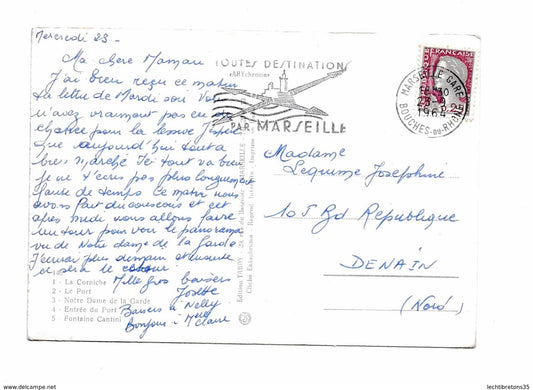 Mercredi 23 -
Ma chère Maman
J'ai bien reçu ce matin
la lettre de Mardi soir Vous
n'avez vraiment pas eu de
chance pour la J'espère
que aujourd'hui tout a
bien marché Ici tout va bien
Je ne t'écris pas plus longuement
faute de temps Ce matin nous
avons fait du couscous et cet
après midi nous allons faire
un tour pour voir le panorama
vu de Notre dame de la Garde
J'écrirai plus demain et ensuite
ce sera le
Mille gros baisers
Josette
Baisers à Nelly
Bonjour à Mme Claire
1 - La Corniche
2 - Le Port
3 - Notre Dame de la Garde
4 - Entrée du Port
5 - Fontaine Cantini
TOUTES DESTINATIONS
PAR MARSEILLE
MARSEILLE GARE
23-9
1964
BOUCHES-DU-RHONE
FRANÇAISE
0,25
Madame
Lequime Joséphine
105 Bd République
DENAIN
(Nord)
lechtibretons35